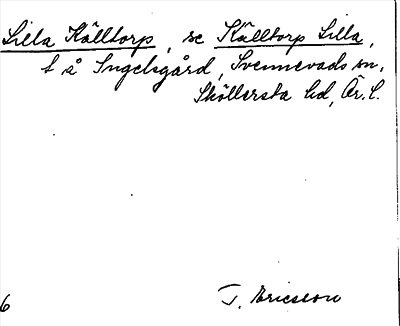 Lilla Källtorp, se Källtorp Lilla,
t å Ingelsgård, Svennevads sn,
Sköllersta hd, Ör. l.
T. Ericsson
6